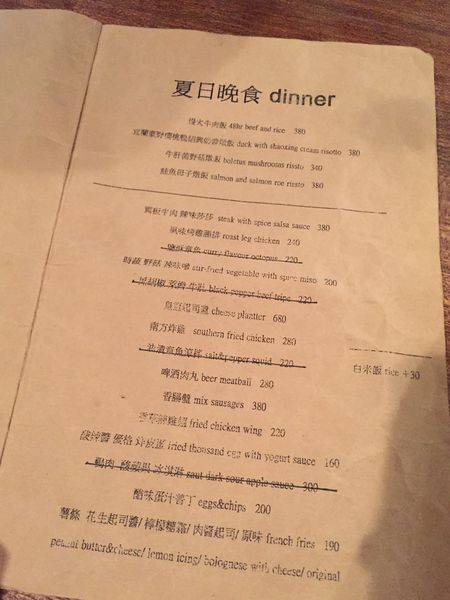 夏日晚食 dinner
慢火牛肉飯 48hr beef and rice 380
宜蘭 櫻桃鴨 紹興 燉飯 duck with shaoxing cream risotto 380
牛肝菌野菇燉飯 boletus mushrooms rissto 340
鮭魚母子燉飯 salmon and salmon roe rissto 380
牛肉 辣味莎莎 steak with spice salsa sauce 380
烤雞腿排 roast leg chicken 240
curry flavour octopus 220
時蔬 野菇 辣味噌 stir-fried vegetable with spice miso 200
黑胡椒 牛肚 black pepper beef tripe 220
起司盤 cheese plantter 680
南方炸雞 southern fried chicken 280
salt&pepper squid 220
白米飯 rice +30
啤酒肉丸 beer meatball 280
香腸盤 mix sausages 380
fried chicken wing 220
酸辣醬 優格 炸皮蛋 fried thousand egg with yogurt sauce 160
鴨肉 冰淇淋 saut dark sour apple sauce 300
醋味蛋汁薯丁 eggs&chips 200
薯條 花生起司醬/ 檸檬糖霜/ 肉醬起司/ 原味 french fries 190
peanut butter&cheese/ lemon icing/ bolognese with cheese/ original